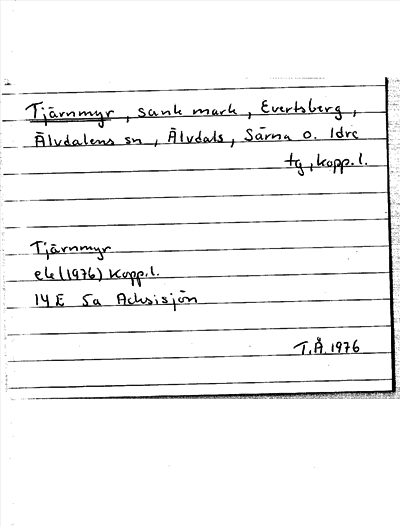 Tjärnmyr, sank mark, Evertsberg,
Älvdalens sn, Älvdals, Särna o. Idre
tg, Kopp.l.
Tjärnmyr
ek (1976) Kopp.l.
14E 5a Acksisjön
T.Å. 1976